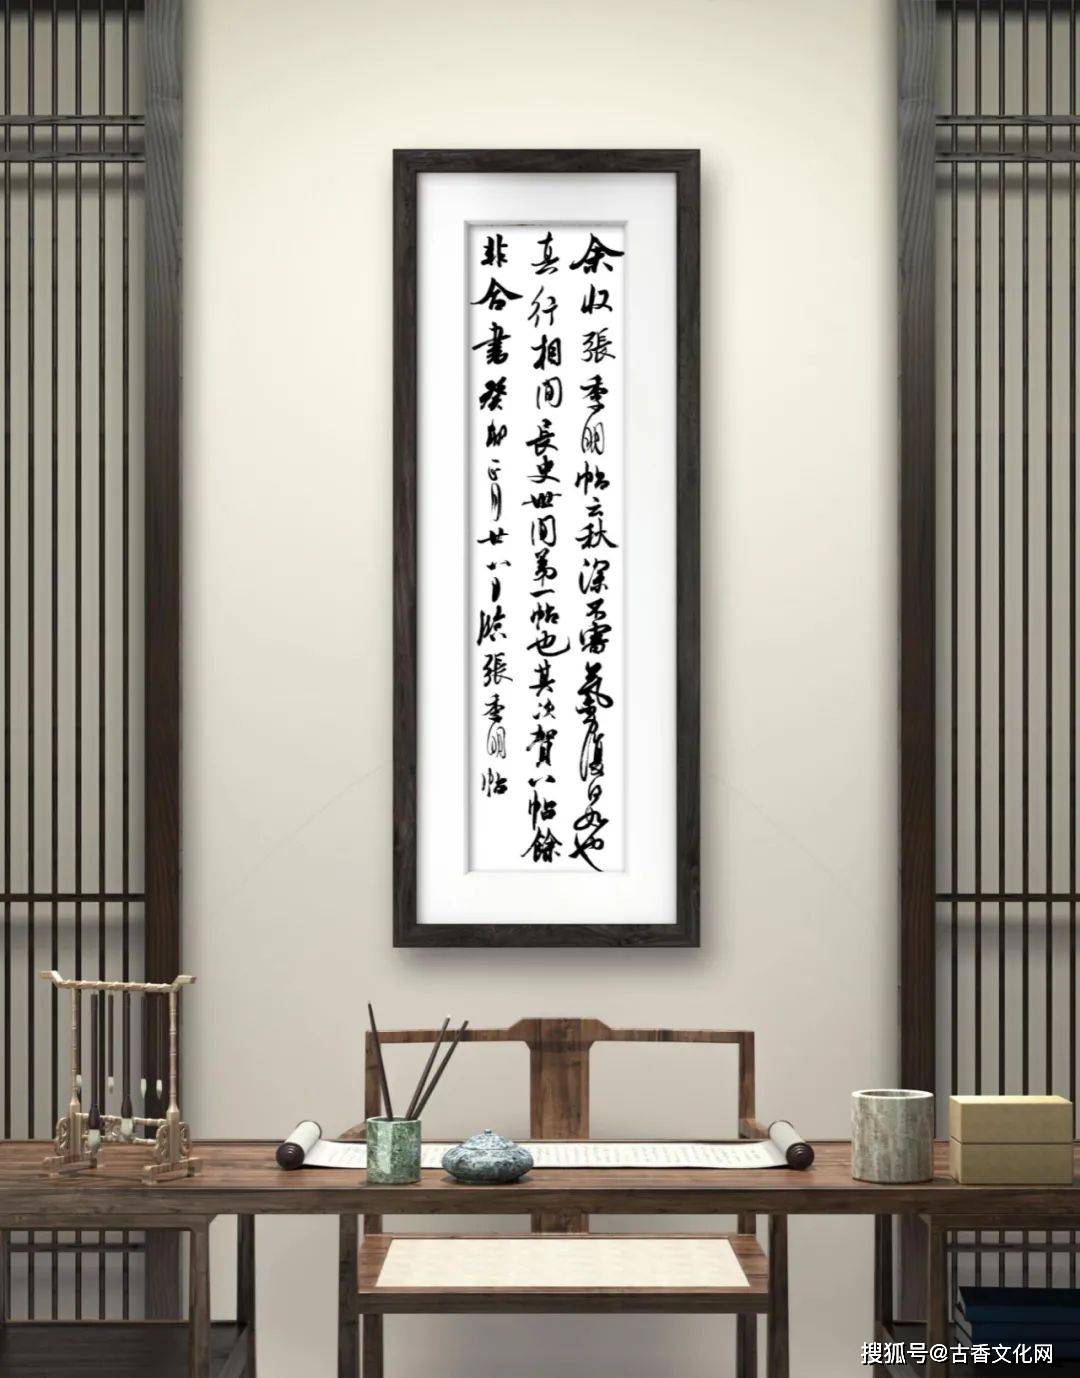 余收張季明帖云秋深不審氣力復何如也
真行相間長史世間第一帖也其次賀八帖餘
非合書癸卯正月廿八日臨張季明帖
搜狐号@古香文化网